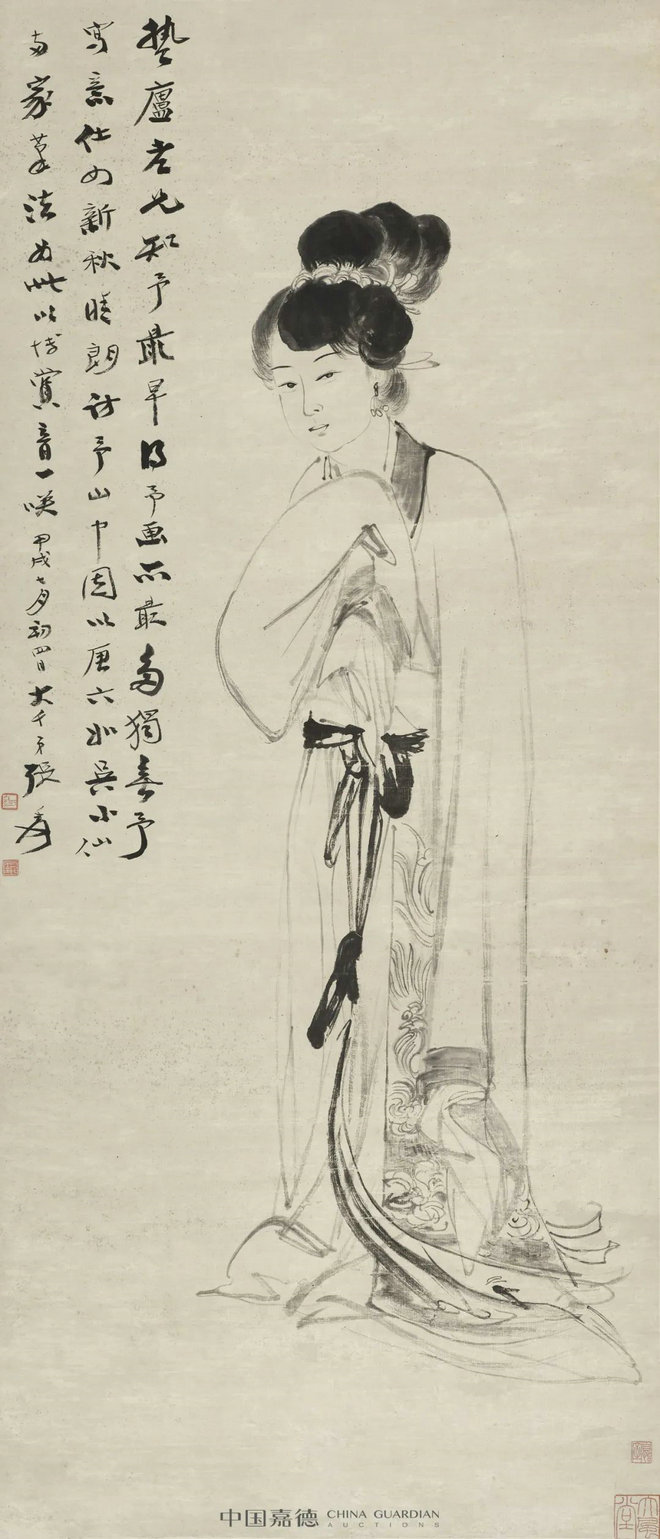 蟄廬老兄知予最早得予画亦最多獨喜予
寫意仕女新秋晴朗訪予山中因以唐六如吳小仙
兩家筆法為此以博賞音一咲甲戌七月初四日大千弟張爰
大風堂
中国嘉德 CHINA GUARDIAN
AUCTIONS